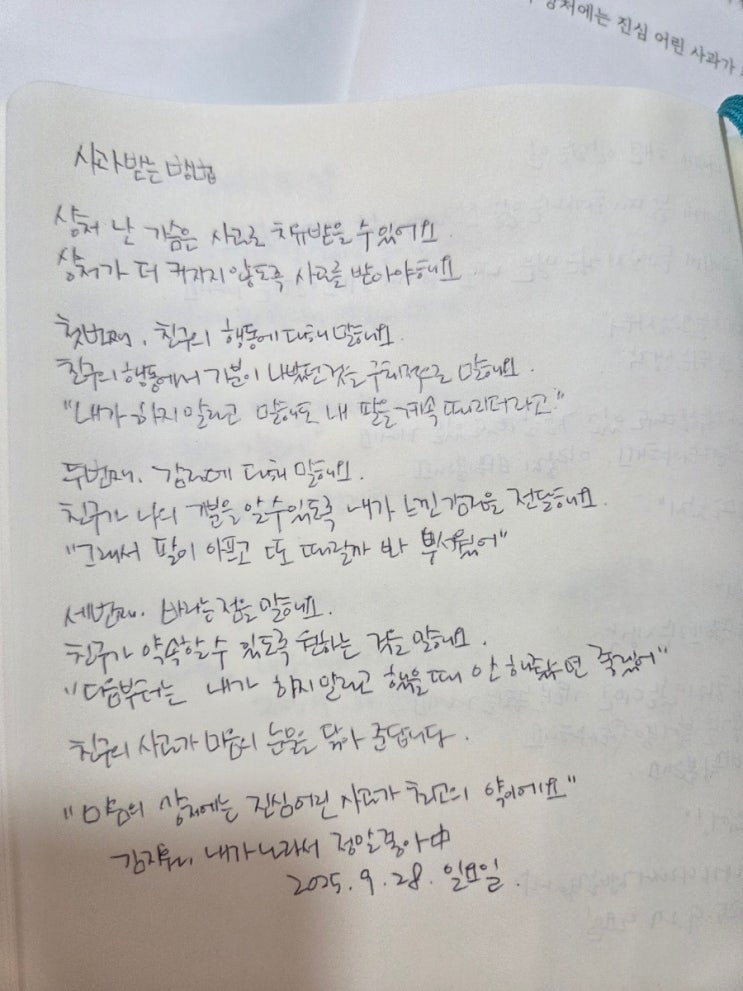 상처에는 진심 어린 사과가
사과 받는 방법
상처 난 가슴은 사과로 치유받을 수 있어요.
상처가 더 커지지 않도록 사과를 받아야 해요.
첫번째, 친구의 행동에 대해 말해요.
친구의 행동에서 기분이 나빴던 것을 구체적으로 말해요.
"내가 하지 말라고 말해도 내 팔을 계속 때리더라고."
두번째, 감정에 대해 말해요.
친구가 나의 기분을 알 수 있도록 내가 느낀 감정을 전달해요.
"그래서 팔이 아프고 또 때릴까 봐 무서웠어"
세번째, 바라는 점을 말해요.
친구가 약속할 수 있도록 원하는 것을 말해요.
"다음부터는 내가 하지 말라고 했을 때 안 해줬으면 좋겠어"
친구의 사과가 마음의 눈물을 닦아 준답니다.
"마음의 상처에는 진심어린 사과가 최고의 약이에요"
내가 나라서 정말 좋아 中
2025. 9. 28. 일요일.